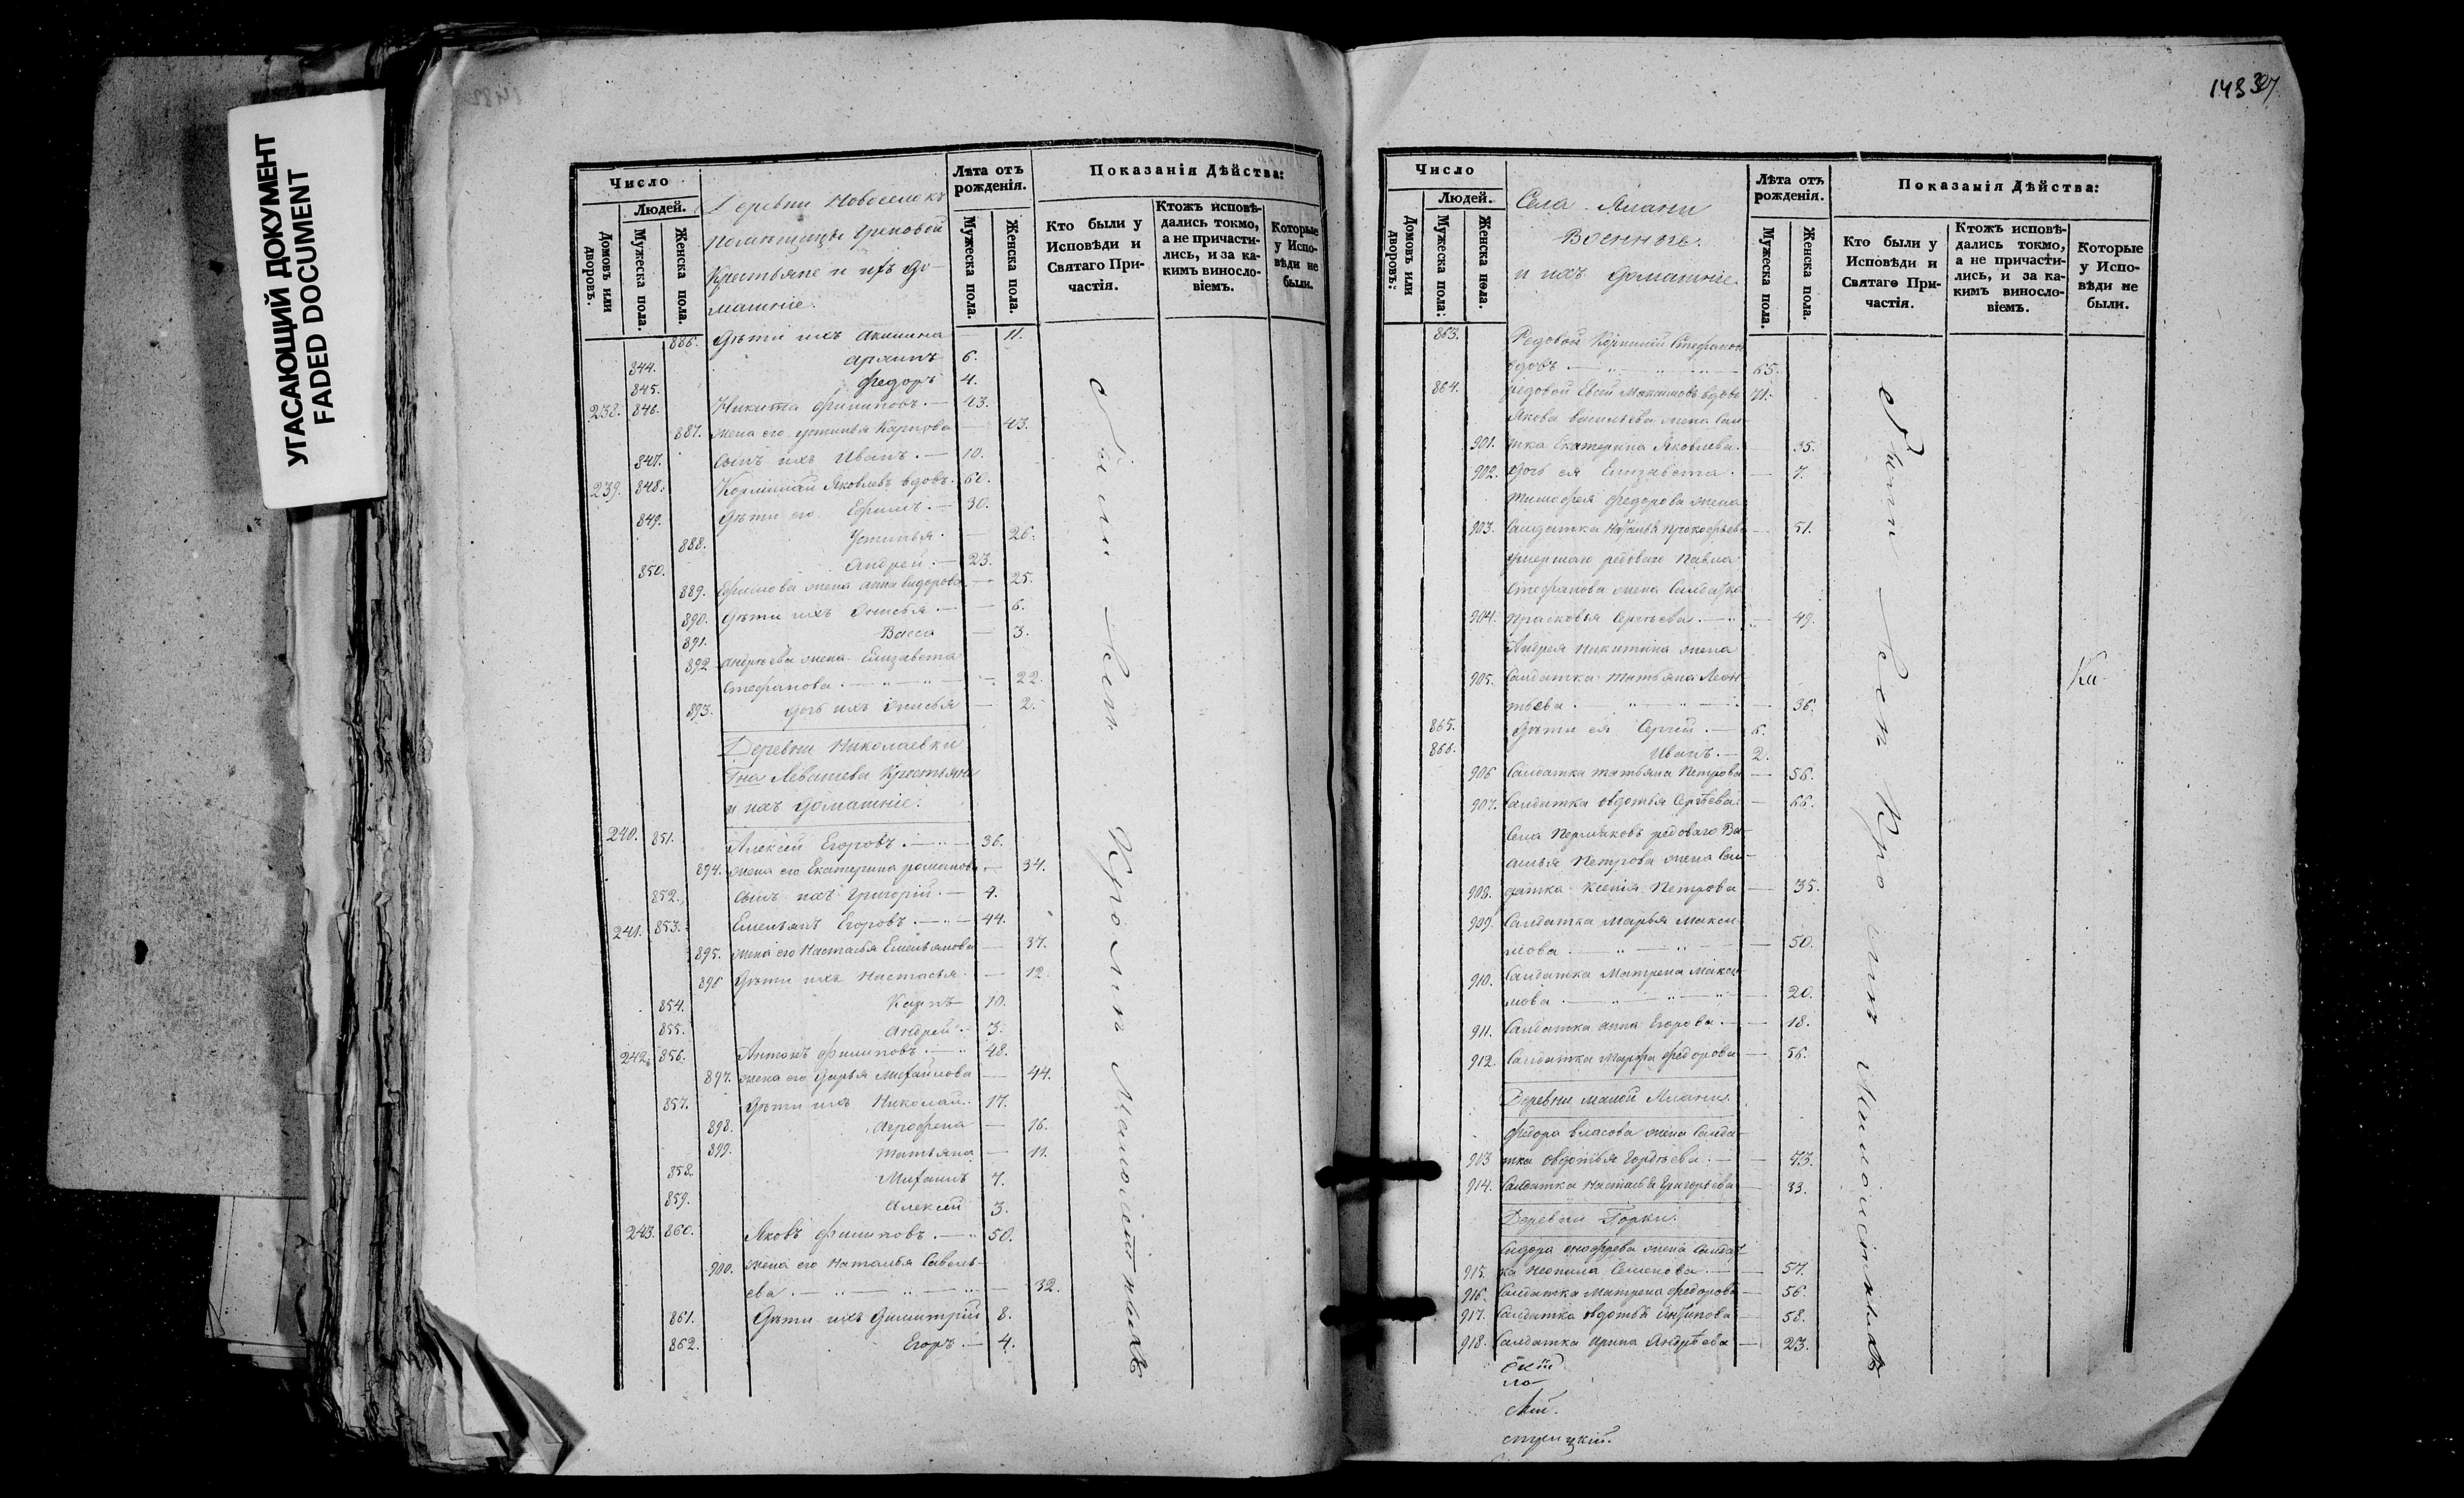 УГАСАЮЩИЙ ДОКУМЕНТ
FADED DOCUMENT
Число
Людей.
Домовъ или дворовъ.
Мужеска пола.
Женска пола.
Деревни Новоселокъ
помѣщицы
Крестьяне и ихъ до-
машніе.
Лѣта отъ рожденія.
Мужеска пола.
Женска пола.
Показанія Дѣйства:
Кто были у Исповѣди и Святаго Причастія.
Ктожъ исповѣдались токмо, а не причастились, и за какимъ винословіемъ.
Которые у Исповѣди не были.
886. Дѣти ихъ Акилина 11.
844. Архипъ 6.
845. Федоръ 4.
238. 846. Никита Филиповъ. — 43.
887. жена его Устинья Карпова — 43.
847. Сынъ ихъ Иванъ. — 10.
239. 848. Яковлевъ вдовъ. 60.
849. Дѣти его Ефимъ. — 30.
888. Устинья. — 26.
850. Андрей. — 23.
889. Ефимова жена Анна Сидорова — 25.
890. Дѣти ихъ Анисья. — 6.
891. Васса — 3.
892 Андрѣева жена Елизавета
Стефанова. — 22.
893. Дочь ихъ Анисья — 2.
Деревни Николаевки
Гна Левашева Крестьяне
и ихъ домашніе.
240. 851. Алексѣй Егоровъ. — 36.
894. жена его Екатерина Романова — 34.
852. Сынъ ихъ Григорій. — 4.
241. 853. Емельянъ Егоровъ. — 44.
895. жена его Настасья Емельянова — 37.
896 Дѣти ихъ Настасья. — 12.
854. Карпъ 10.
855. Андрей. — 3.
242. 856. Антонъ Филиповъ. — 48.
897. жена его Дарья Михайлова — 44.
857. Дѣти ихъ Николай. 17.
898. Агрофена — 16.
899. Татьяна — 11.
858. Михаилъ 7.
859. Алексѣй 3.
243. 860. Яковъ Филиповъ. — 50.
900. жена его Наталья Савель-
ева. — 32.
861. Дѣти ихъ Димитрій 8.
862. Егоръ. — 4.
Число
Людей.
Домовъ или дворовъ:
Мужеска пола:
Женска пола.
Села Ялани
Военные.
и ихъ домашніе.
Лѣта отъ рожденія.
Мужеска пола.
Женска пола.
Показанія Дѣйства:
Кто были у Исповѣди и Святаго Причастія.
Ктожъ исповѣдались токмо, а не причастились, и за какимъ винословіемъ.
Которые у Исповѣди не были.
863. Редовой Стефановъ
вдовъ — 65.
864. редовой Евсей Максимовъ вдовъ 71.
Якова Васильева жена Сал-
901. тка Екатерина Яковлева. — 35.
902. Дочь ея Елизавета. — 7.
Тимофея Федорова жена
903. Салдатка Наталья Прокофьева — 51.
умершаго редоваго Павла
Стефанова жена Салдатка
904. Прасковья Сергѣева. — 49.
Андрея Никитина жена
905. Салдатка Татьяна Леон-
тьева. — 36.
865. Дѣти ея Сергей. — 6.
866. Иванъ. — 2.
906 Салдатка Татьяна Петрова — 56.
907. Салдатка Овдотья Сергѣева. — 66.
Села редоваго Ва-
силья Петрова жена Сал-
908. датка Ксенія Петрова — 35.
909. Салдатка Марья Макси-
мова. — 50.
910. Салдатка Матрена Макси-
мова — 20.
911. Салдатка Анна Егорова. — 18.
912. Салдатка Марфа Федорова — 56.
Деревни малой Ялани.
Федора Власова жена Салда-
913 тка Овдотья Гордѣева. — 43.
914. Салдатка Настасья Григорьева — 33.
Деревни Горки.
Сидора Онофрева жена Салдат-
915. ка Неонила Семенова. — 57.
916. Салдатка Матрена Федорова — 56.
917. Салдатка Овдотья Антипова — 58.
918. Салдатка Арина Андрѣева — 23.